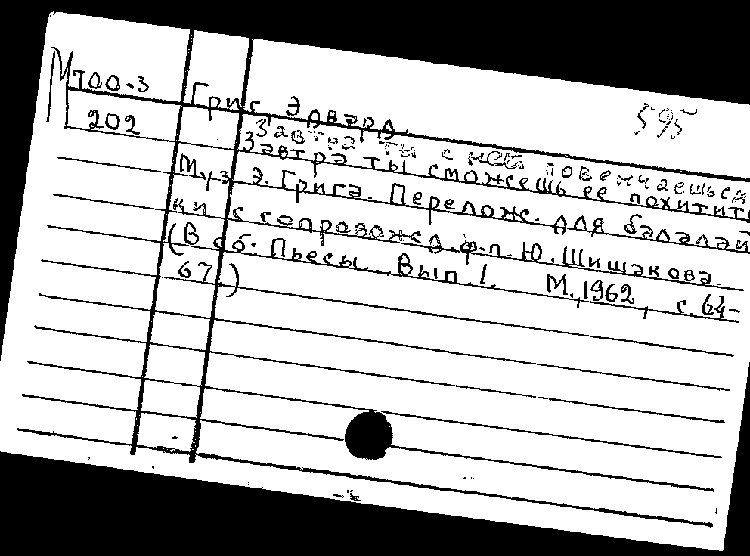 М700-3 Григ, Эдвард. 595
202 Завтра ты с ней повенчаешься
Завтра ты сможешь ее похитить
Муз. Э. Грига. Перелож. для балалай
ки с сопровожд. ф.-п. Ю. Шишакова
(В сб. Пьесы. Вып. 1. М., 1962, с. 64-
67.)